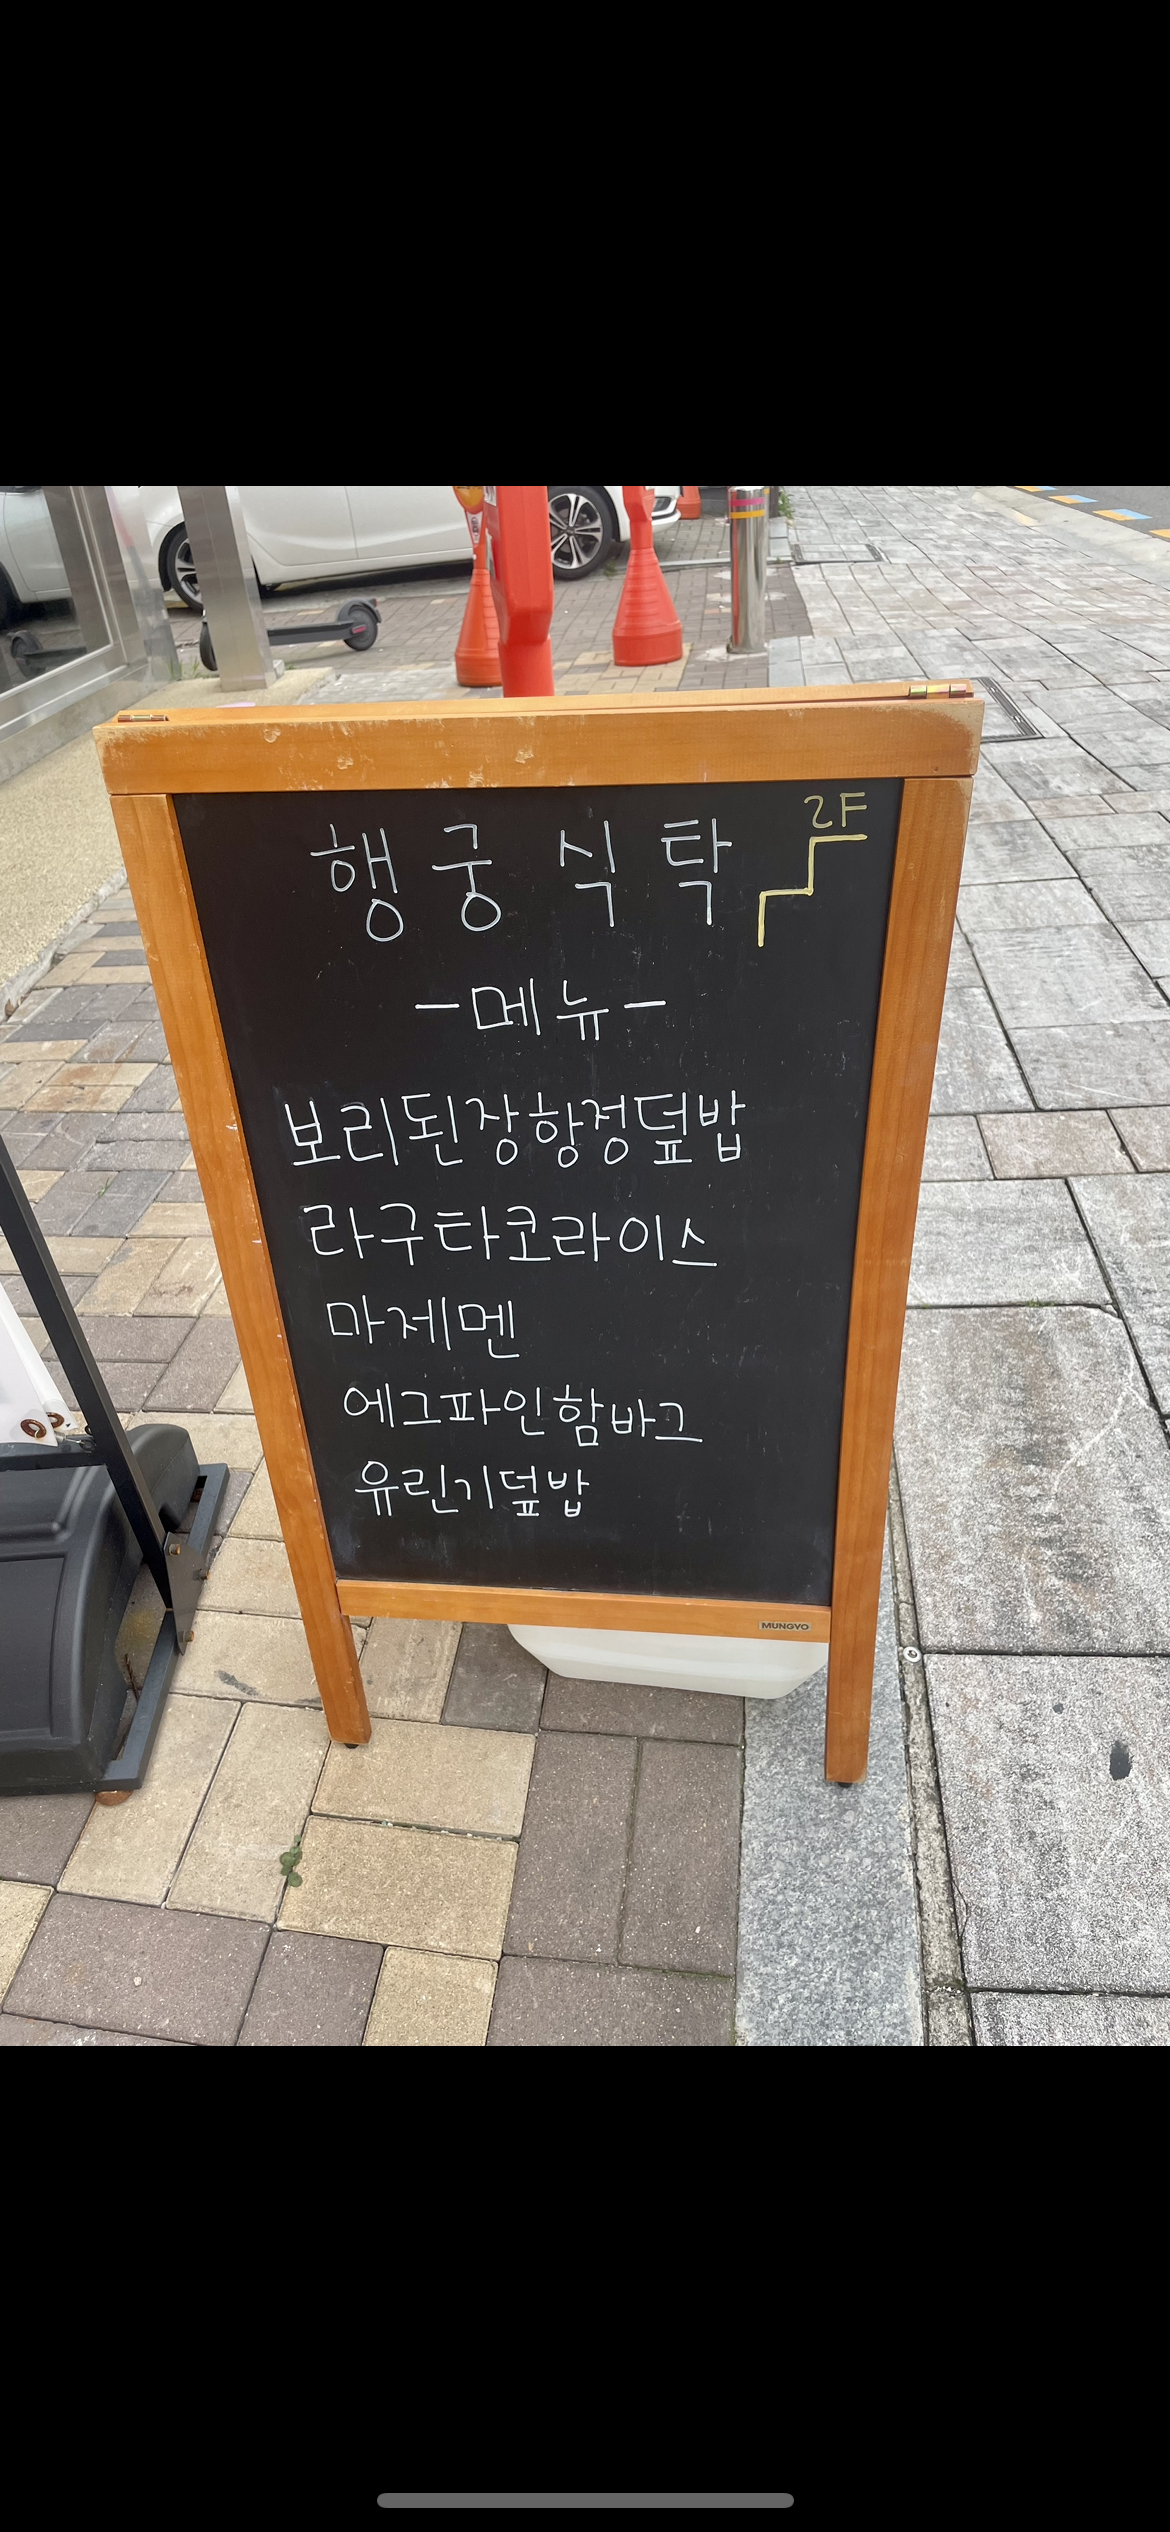 행궁식탁 2F
-메뉴-
보리된장항정덮밥
라구타코라이스
마제멘
에그파인함바그
유린기덮밥
MUNGYO